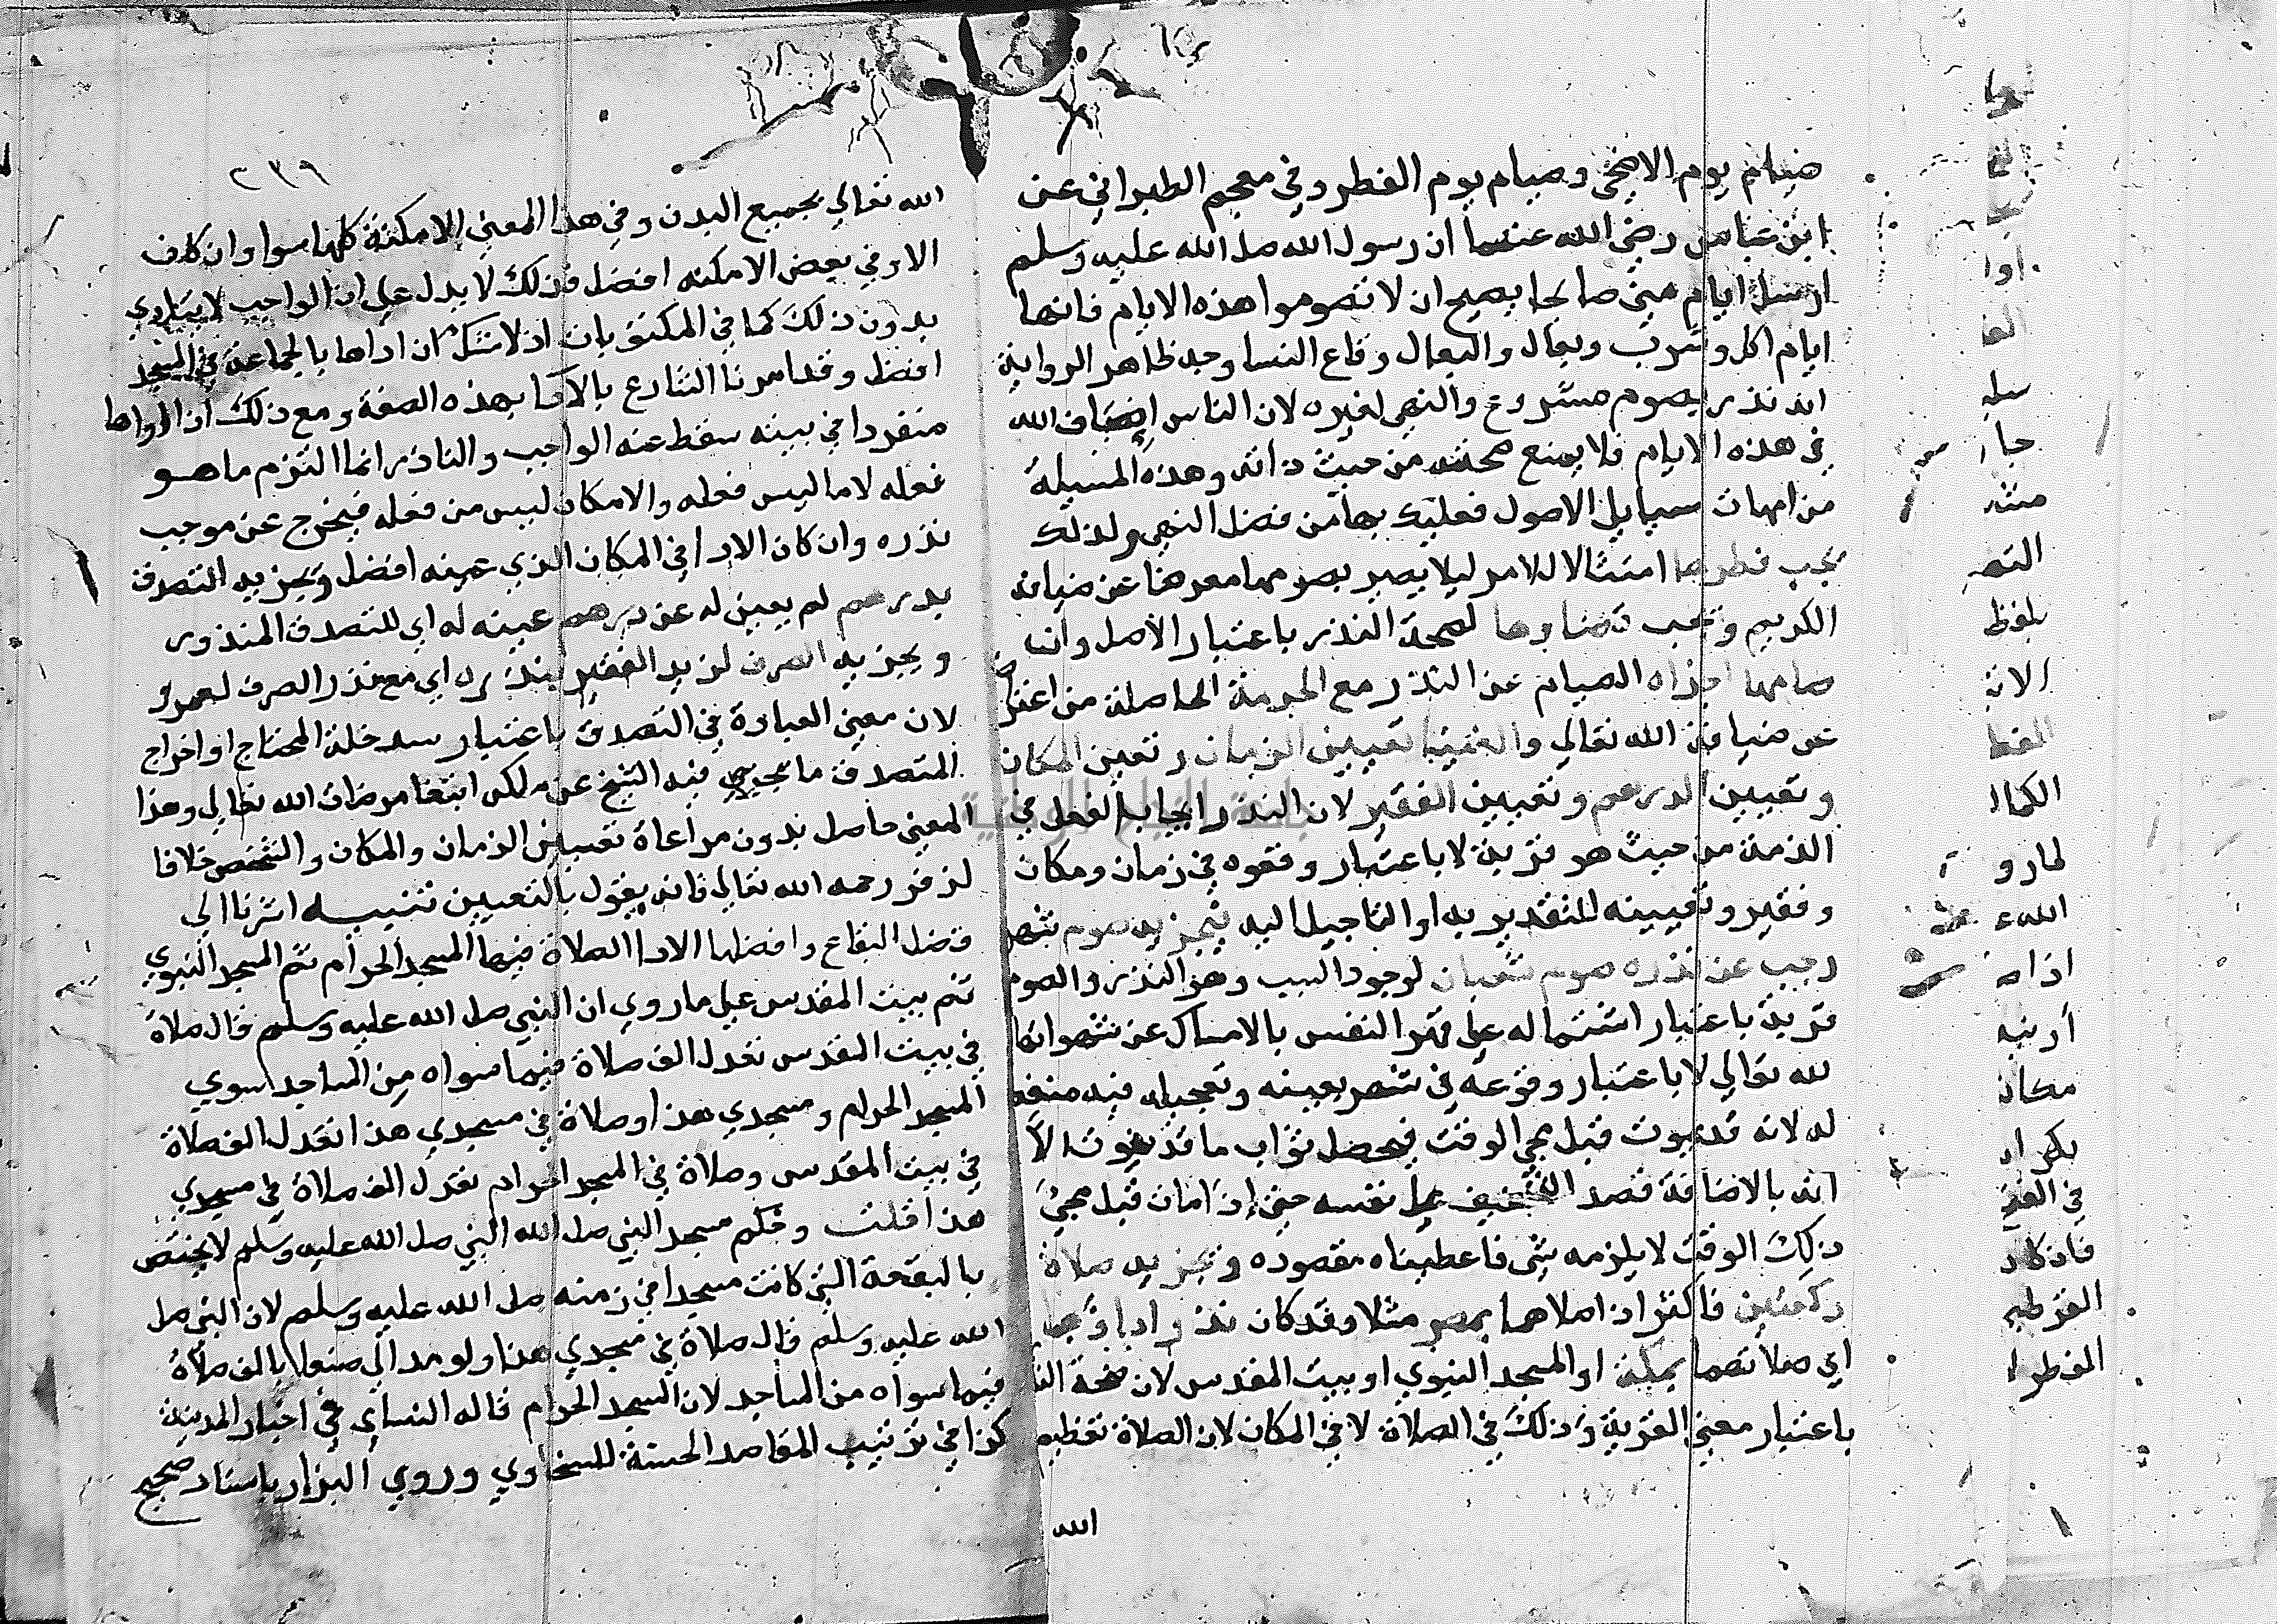 صيام يوم الاضحي وصيام يوم الفطر وفي معجم الطبراني عن
ابن عباس رضي الله عنهما ان رسول الله صلى الله عليه وسلم
ارسل ايام مني صايحا يصيح ان لا تصوموا هذه الايام فانها
ايام اكل وشرب وبعال والبعال وقاع النسا وجه ظاهر الرواية
انه نذر بصوم مشروع والنهي لغيره لان الناس اضياف الله
في هذه الايام فلا يمنع صحته من حيث ذاته وهذه المسيلة
من امهات مسايل الاصول فعليك بها من فضل النهي ولذلك
يجب فطرها امتثالا للامر ليلا يصير بصومها معرضا عن ضيافة
الكريم ويجب قضاوها لصحة النذر باعتبار الاصل وان
صامها اجزاه الصيام عن النذر مع الحرمة الحاصلة من اعراض
عن ضيافة الله تعالي والغينا تعيين الزمان وتعيين المكان
وتعيين الدرهم وتعيين الفقير لان النذر ايجاب الفعل في
الذمة من حيث هو قربة لا باعتبار وقوعه في زمان ومكان
وفقير وتعيينه للتقدير به او التاجيل اليه فيجزيه صوم شهر
رجب عن نذره صوم شعبان لوجود السبب وهو النذر والصوم
قربة باعتبار اشتماله علي قهر النفس بالامساك عن شهواتها
لله تعالي لا باعتبار وقوعه في شهر بعينه وتعجيله فيه منفعة
له لانه قد يموت قبل مجي الوقت فيحصل ثواب ما قد يفوت الا
انه بالاضافة قصد التخفيف علي نفسه حتي اذا مات قبل مجيء
ذلك الوقت لا يلزمه شي فاعطيناه مقصوده وتجزيه صلاة
ركعتين فاكثر اذا صلاهما بمصر مثلا وقد كان نذر اداوهما
اي صلاتهما بمكة او المسجد النبوي او بيت المقدس لان صحة النذر
باعتبار معني القربة وذلك في الصلاة لا في المكان لان الصلاة تعظيم
الله
٢٣٩
الله تعالي بجميع البدن وفي هذا المعني الامكنة كلها سوا وان كان
الاداء في بعض الامكنه افضل فذلك لا يدل علي ان الواجب لا يتادي
بدون ذلك كما في المكتوبات اذ لا شك ان اداها بالجماعة في المسجد
افضل وقد امرنا الشارع بالادا بهذه الصفة ومع ذلك اذا اداها
منفردا في بيته سقط عنه الواجب والناذر انما التزم ما هو
فعله لا ما ليس فعله والامكان ليس من فعله فيخرج عن موجب
نذره وان كان الادا في المكان الذي عينه افضل ويجزيه التصدق
بدرهم لم يعين له عن درهم عينه له اي للتصدق المنذور
ويجزيه الصرف لزيد الفقير بنذره اي مع نذر الصرف لعمرو
لان معني العبادة في التصدق باعتبار سد خلة المحتاج او اخراج
المتصدق ما يجري فيه الشح عن ملكه ابتغا مرضات الله تعالي وهذا
المعني حاصل بدون مراعاة تعيين الزمان والمكان والشخص خلافا
لزفر رحمه الله تعالي فانه يقول بالتعيين تنبيه اشرنا الي
فضل البقاع وافضلها الادا الصلاة فيها المسجد الحرام ثم المسجد النبوي
ثم بيت المقدس علي ما روي ان النبي صلى الله عليه وسلم قال صلاة
في بيت المقدس تعدل الف صلاة فيما سواه من المساجد سوي
المسجد الحرام ومسجدي هذا وصلاة في مسجدي هذا تعدل الف صلاة
في بيت المقدس وصلاة في المسجد الحرام تعدل الف صلاة في مسجدي
هذا قلت وحكم مسجد النبي صلى الله النبي صلى الله عليه وسلم لا يختص
بالبقعة التي كانت مسجدا في زمنه صلى الله عليه وسلم لان النبي صلى
الله عليه وسلم قال صلاة في مسجدي هذا ولو مد الي صنعا بالف صلاة
فيما سواه من المساجد لان المسجد الحرام قاله النساي في اخبار المدينة
كذا في ترتيب المقاصد الحسنة للسخاوي وروي البزار باسناد صحيح